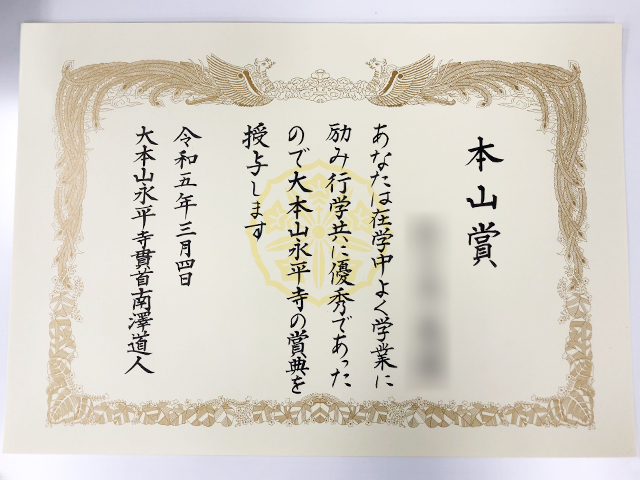 本山賞
あなたは在学中よく学業に
励み行学共に優秀であった
ので大本山永平寺の賞典を
授与します
令和五年三月四日
大本山永平寺貫首南澤道人